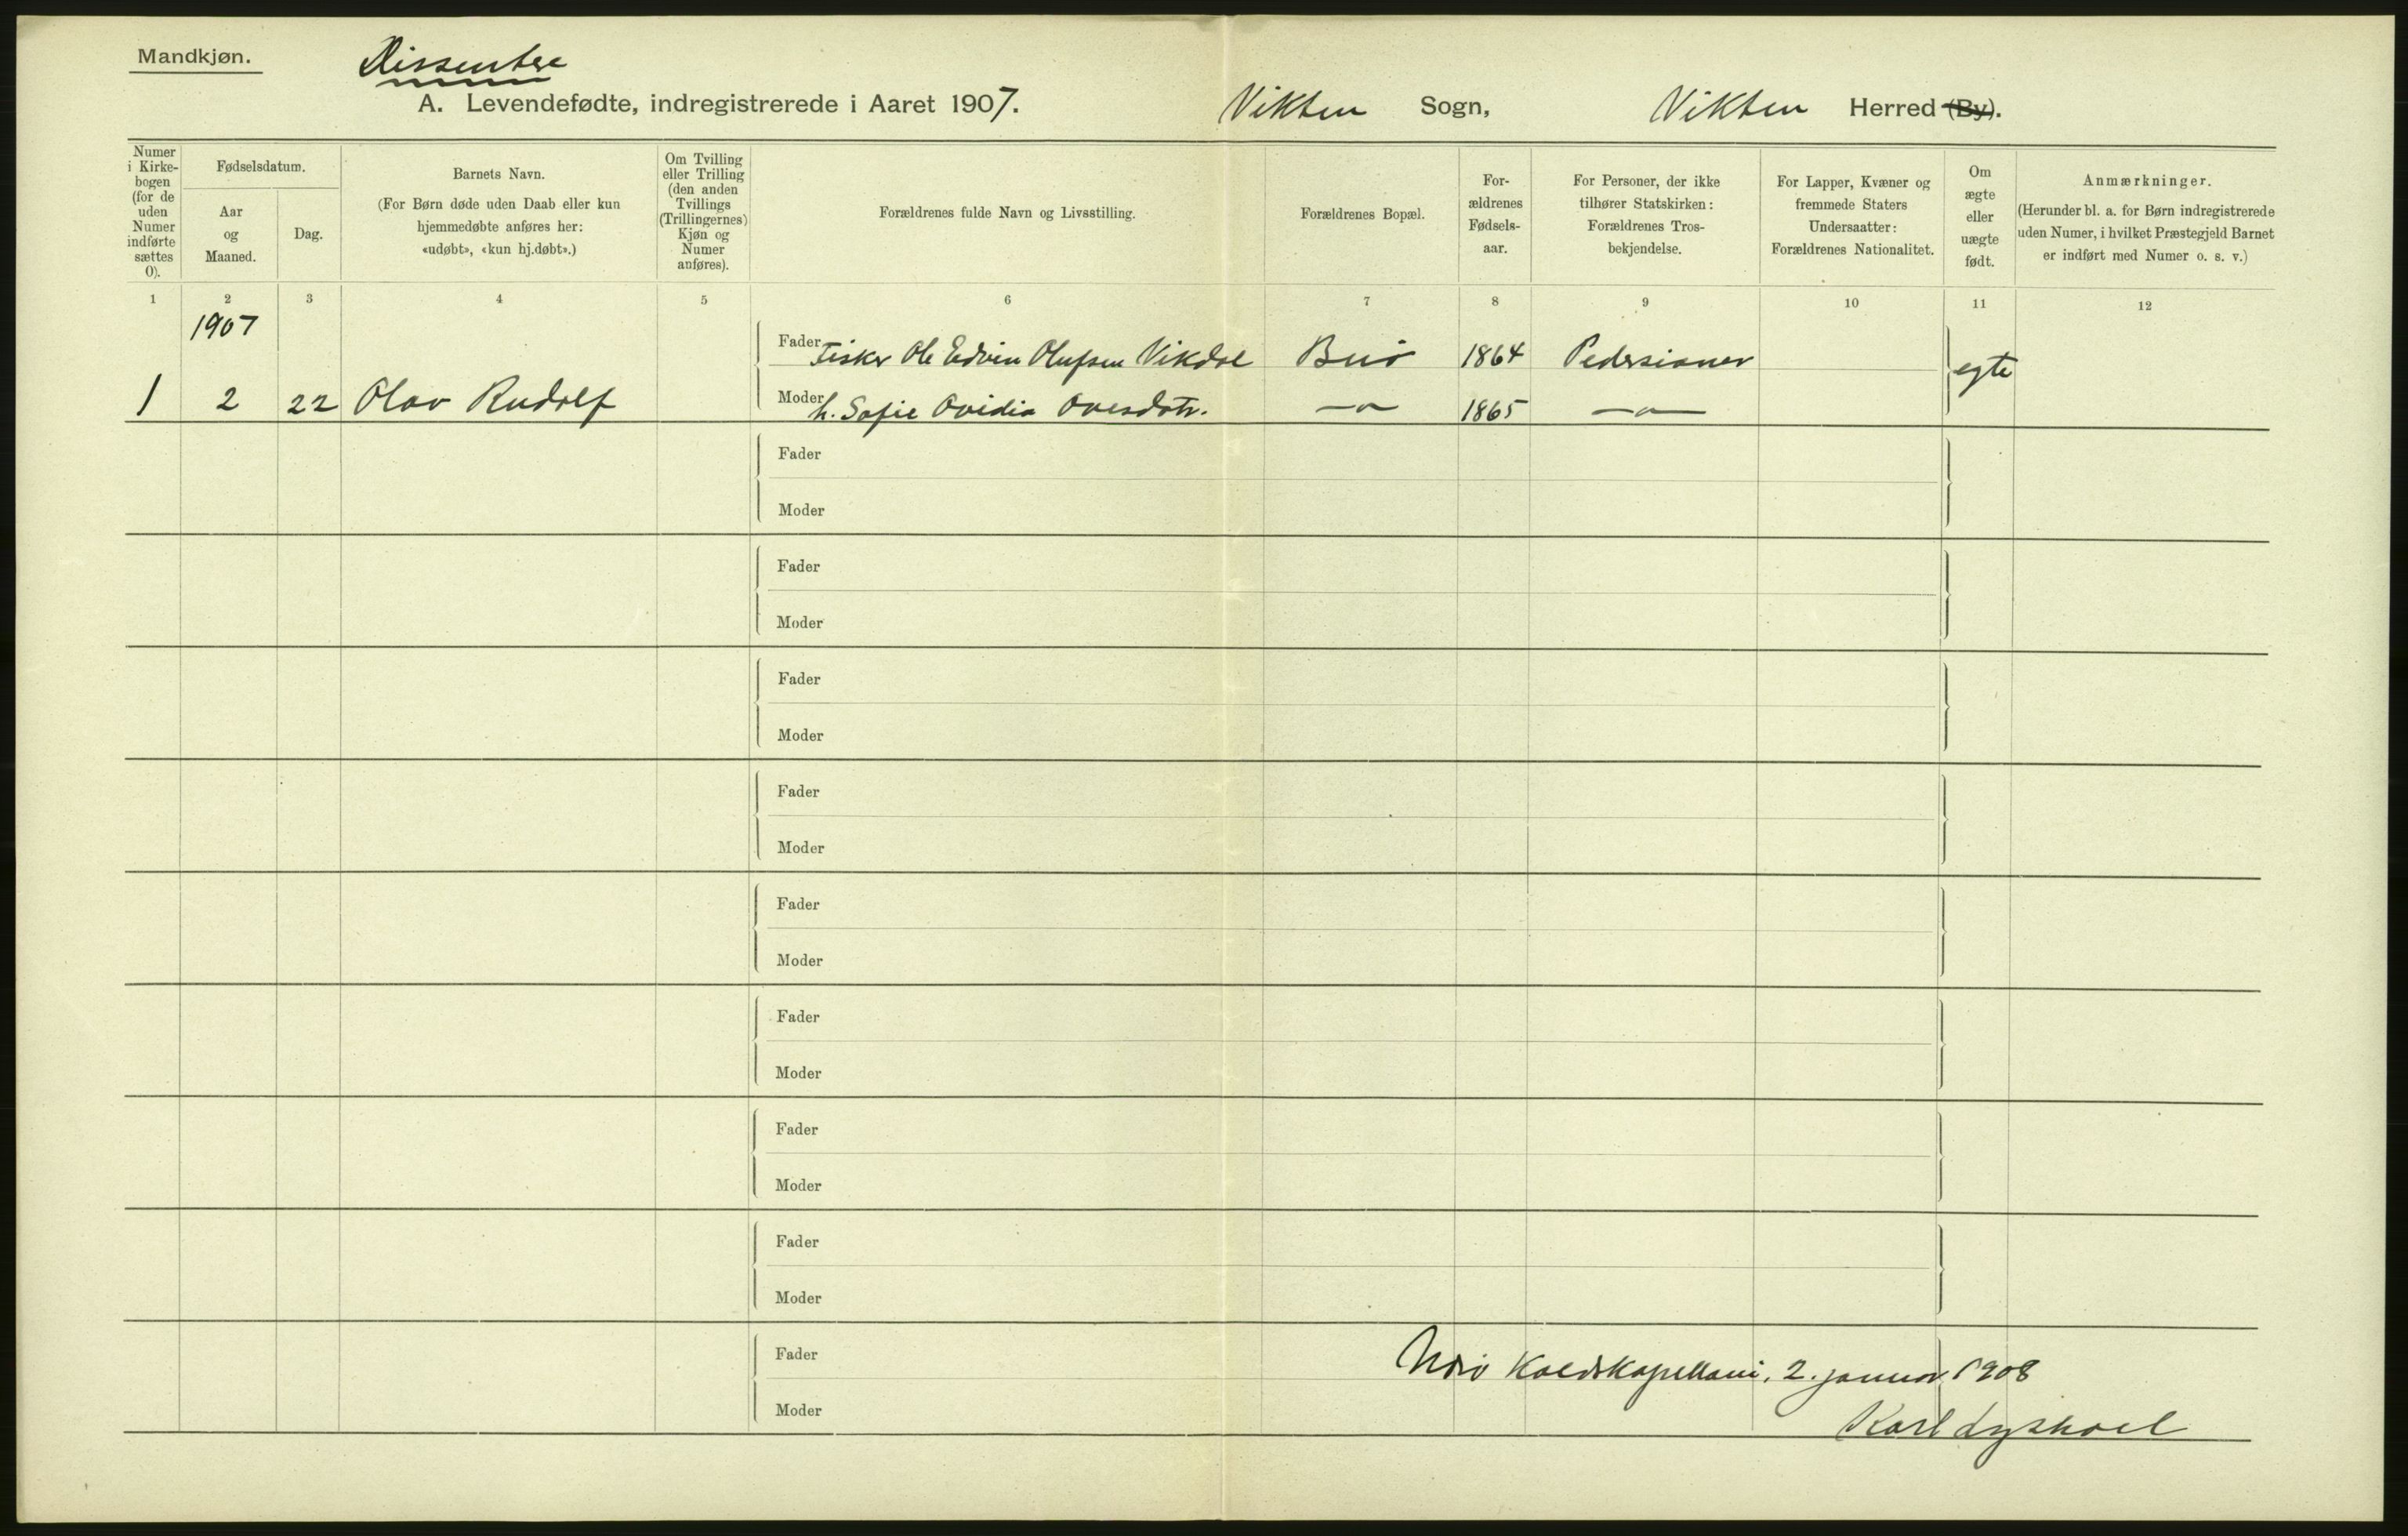 Mandkjøn.
Dissentere
A. Levendefødte, indregistrerede i Aaret 1907. Vikten Sogn, Vikten Herred (By).
Numer i Kirkebogen (for de uden Numer indførte sættes 0).
Fødselsdatum.
Aar og Maaned.
Dag.
Barnets Navn.
(For Børn døde uden Daab eller kun
hjemmedøbte anføres her:
«udøbt», «kun hj.døbt».)
Om Tvilling
eller Trilling
(den anden
Tvillings
(Trillingernes)
Kjøn og
Numer
anføres).
Forældrenes fulde Navn og Livsstilling.
Forældrenes Bopæl.
For-
ældrenes
Fødsels-
aar.
For Personer, der ikke
tilhører Statskirken:
Forældrenes Tros-
bekjendelse.
For Lapper, Kvæner og
fremmede Staters
Undersaatter:
Forældrenes Nationalitet.
Om
ægte
eller
uægte
født.
Anmærkninger.
(Herunder bl. a. for Børn indregistrerede
uden Numer, i hvilket Præstegjeld Barnet
er indført med Numer o. s. v.)
1 2 3 4 5 6 7 8 9 10 11 12
1907
Fader Fisker Ole Edvin Olufsen Vikdal 1864 Pedersianer egte
1 2 22 Olav Rudolf Moder h. Sofie Ovidia Ovesdatr. —"— 1865 —"—
Fader
Moder
Fader
Moder
Fader
Moder
Fader
Moder
Fader
Moder
Fader
Moder
Fader
Moder
Fader
Moder
Fader
Moder
2. januar 1908
Karl Lyshoel